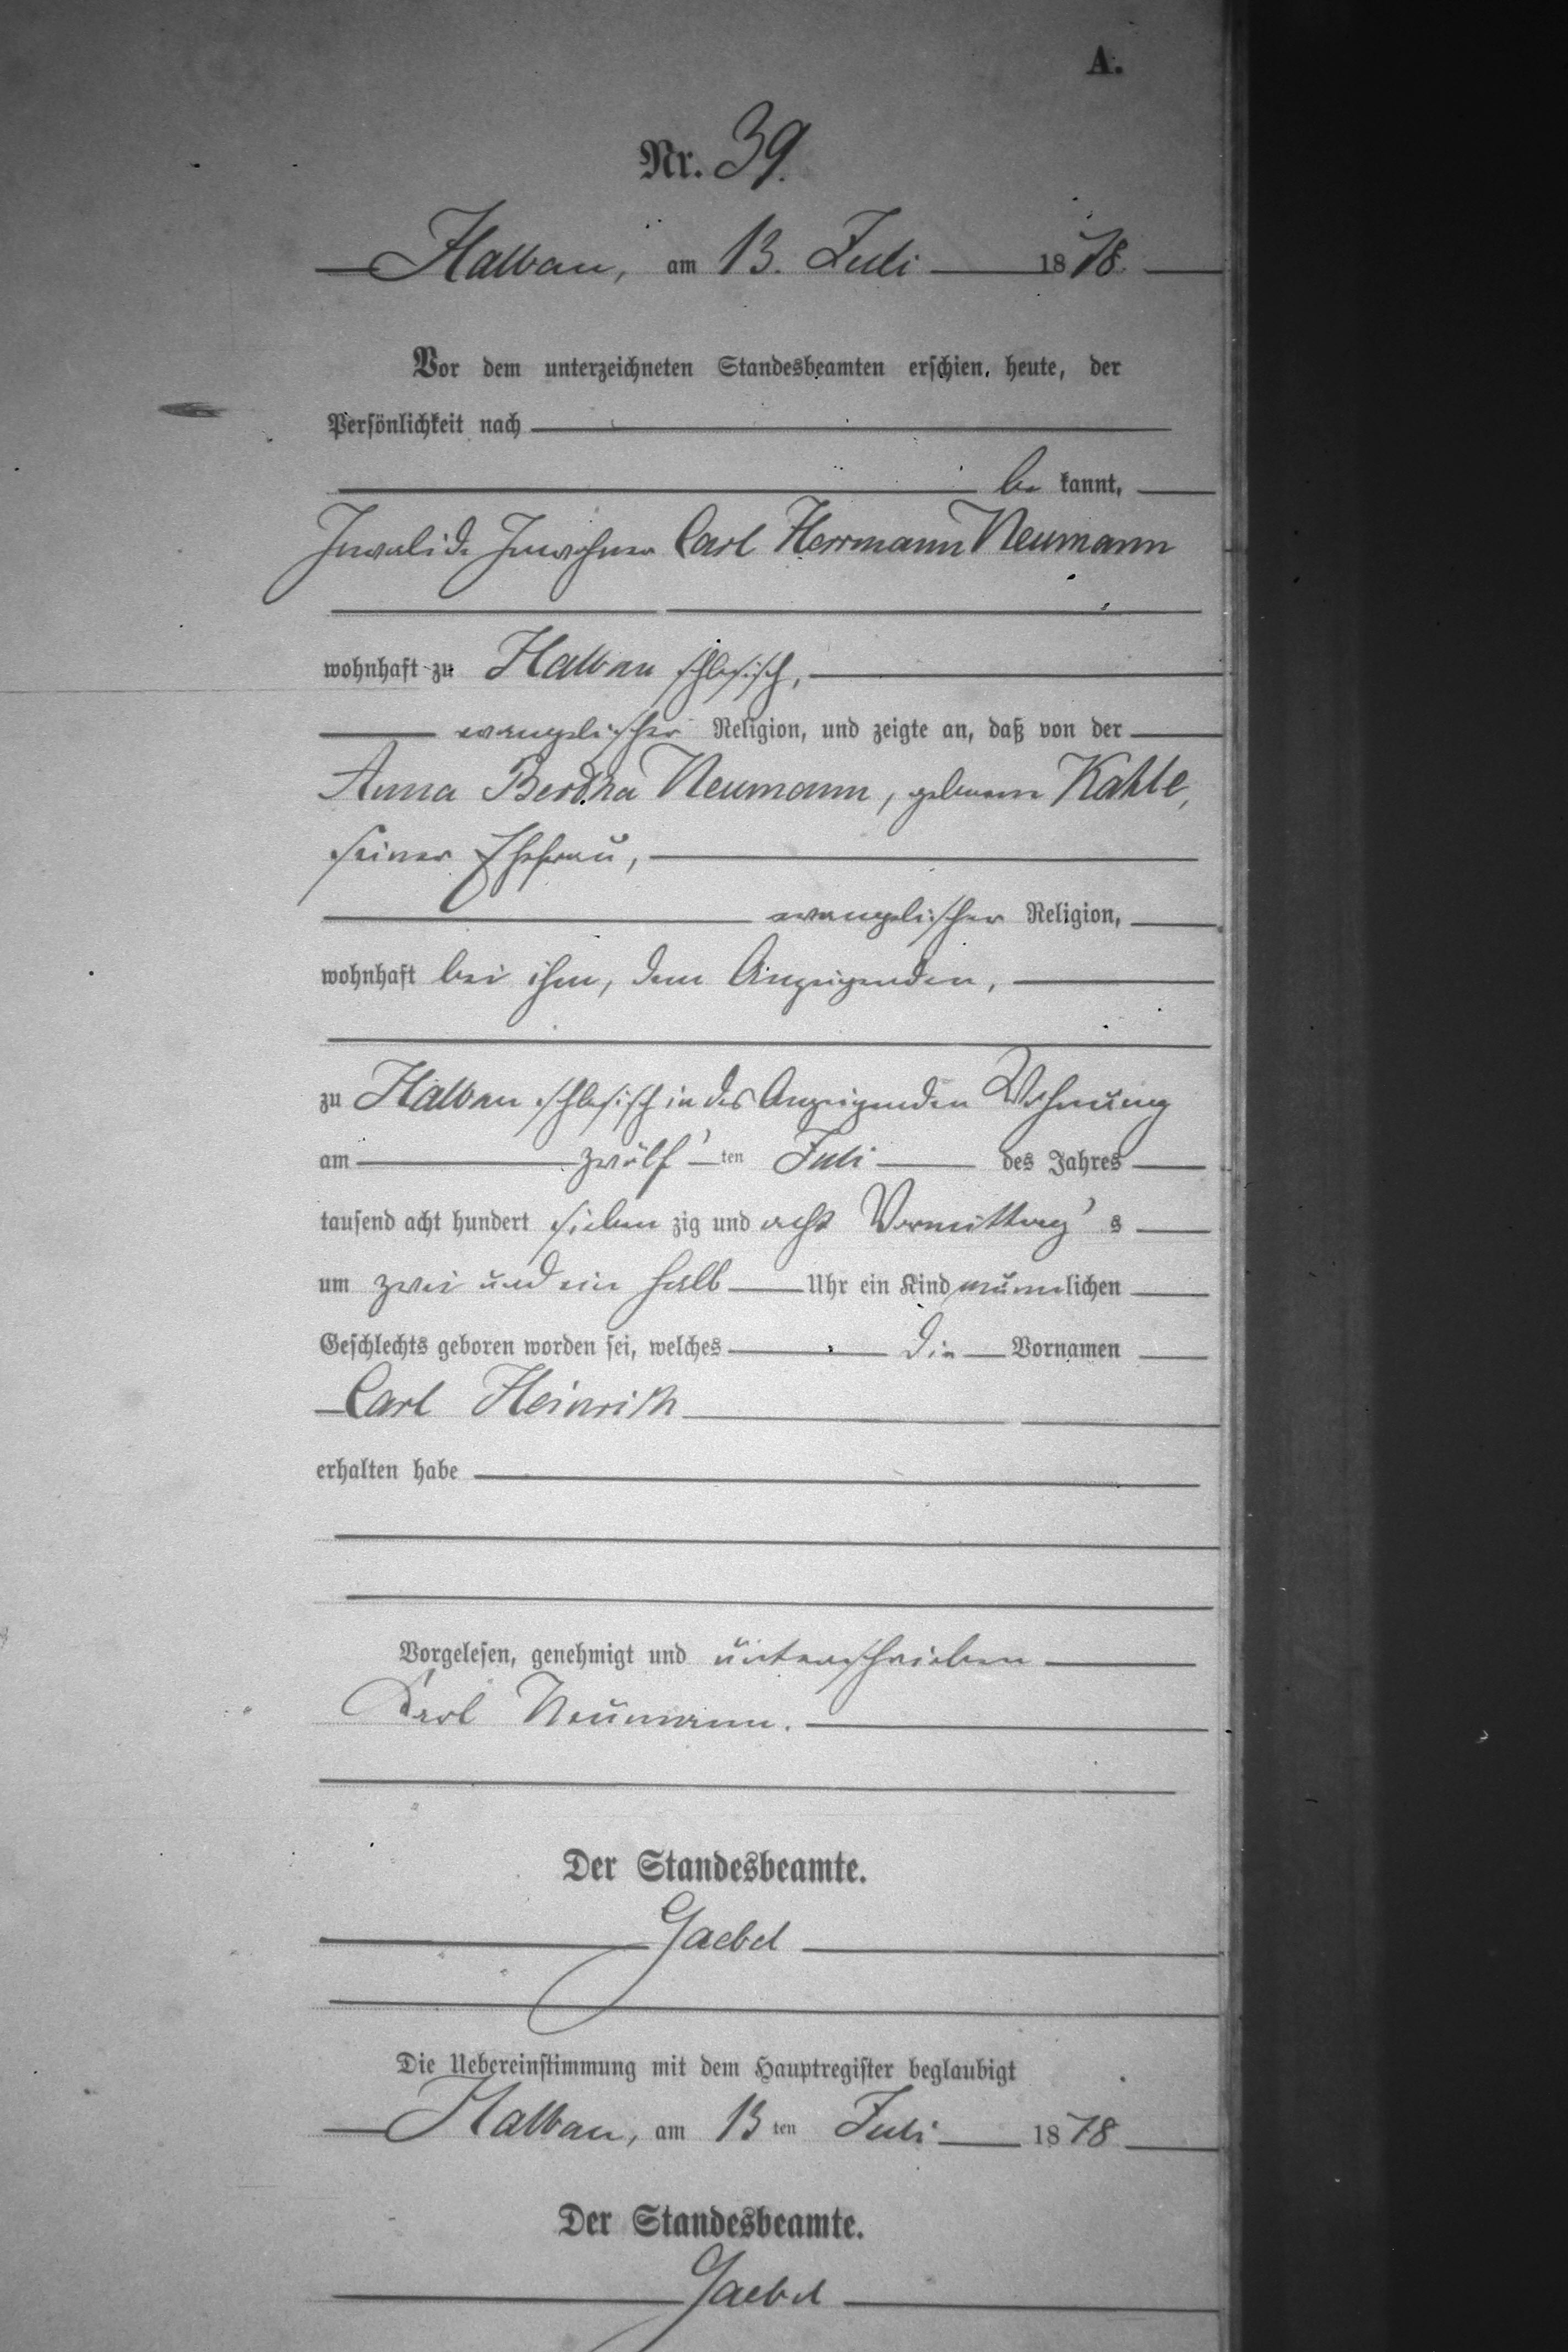 A.
Nr. 39.
Halbau, am 13. Juli 1878.
Vor dem unterzeichneten Standesbeamten erschien heute, der
Persönlichkeit nach
be kannt,
Invalide Inwohner Carl Herrmann Neumann
wohnhaft zu Halbau schlesisch,
evangelischer Religion, und zeigte an, daß von der
Anna Bertha Neumann, geborene Kahle,
seiner Ehefrau,
evangelischer Religion,
wohnhaft bei ihm, dem Anzeigenden,
zu Halbau schlesisch in des Anzeigenden Wohnung
am zwölf ten Juli des Jahres
tausend acht hundert sieben zig und acht Vormittag s
um zwei und ein halb Uhr ein Kind männlichen
Geschlechts geboren worden sei, welches die Vornamen
Carl Heinrich
erhalten habe
Vorgelesen, genehmigt und unterschrieben
Karl Neumann.
Der Standesbeamte.
Gaebel
Die Uebereinstimmung mit dem Hauptregister beglaubigt
Halbau, am 13 ten Juli 1878
Der Standesbeamte.
Gaebel